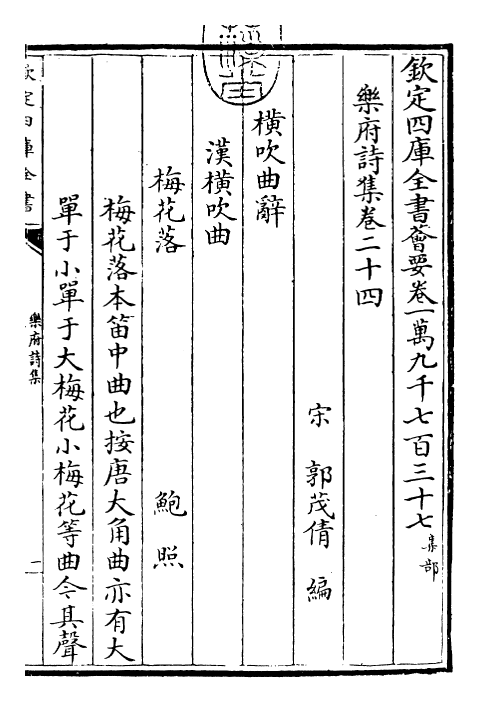 欽定四庫全書薈要卷一萬九千七百三十七集部
樂府詩集卷二十四
宋 郭茂倩 編
橫吹曲辭
漢橫吹曲
梅花落 鮑照
梅花落本笛中曲也按唐大角曲亦有大
單于小單于大梅花小梅花等曲今其聲
欽定四庫全書
樂府詩集